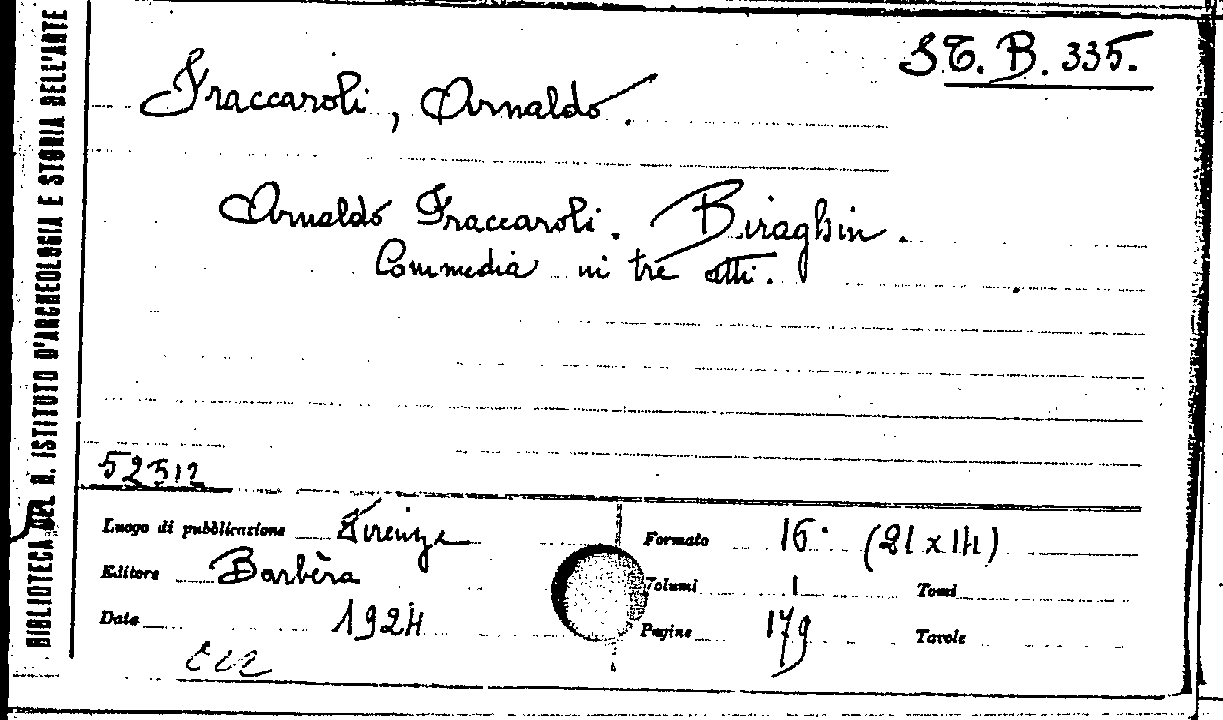 BIBLIOTECA DEL R. ISTITUTO D'ARCHEOLOGIA E STORIA DELL'ARTE
ST. B. 335.
Fraccaroli, Arnaldo.
Arnaldo Fraccaroli. Biraghin.
Commedia in tre atti.
52512
Luogo di pubblicazione Firenze
Formato 16° (21 x 14)
Editore Barbèra
Volumi 1 Tomi
Data 1924
Pagine 179 Tavole